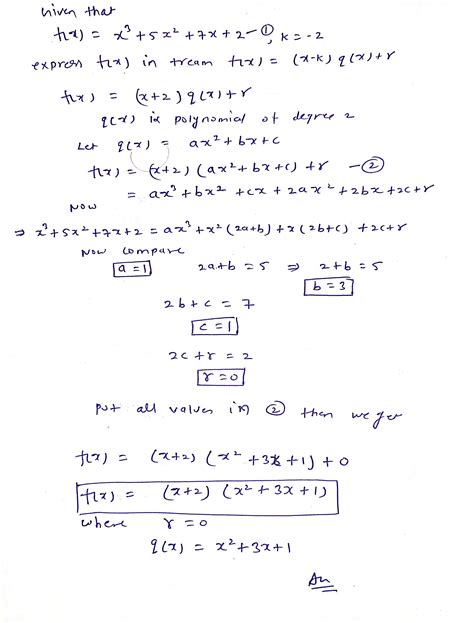 Given that
f(x) = x³ + 5x² + 7x + 2 — ①, k = -2
express f(x) in tream f(x) = (x-k) q(x) + r
f(x) = (x+2) q(x) + r
q(x) is polynomial of degree 2
Let q(x) = ax² + bx + c
f(x) = (x+2) (ax² + bx + c) + r — ②
= ax³ + bx² + cx + 2ax² + 2bx + 2c + r
Now
⇒ x³ + 5x² + 7x + 2 = ax³ + x² (2a+b) + x (2b+c) + 2c + r
Now compare
a = 1 2a+b = 5 ⇒ 2+b = 5
b = 3
2b + c = 7
c = 1
2c + r = 2
r = 0
Put all values in ② then we get
f(x) = (x+2) (x² + 3x + 1) + 0
f(x) = (x+2) (x² + 3x + 1)
where r = 0
q(x) = x² + 3x + 1
An